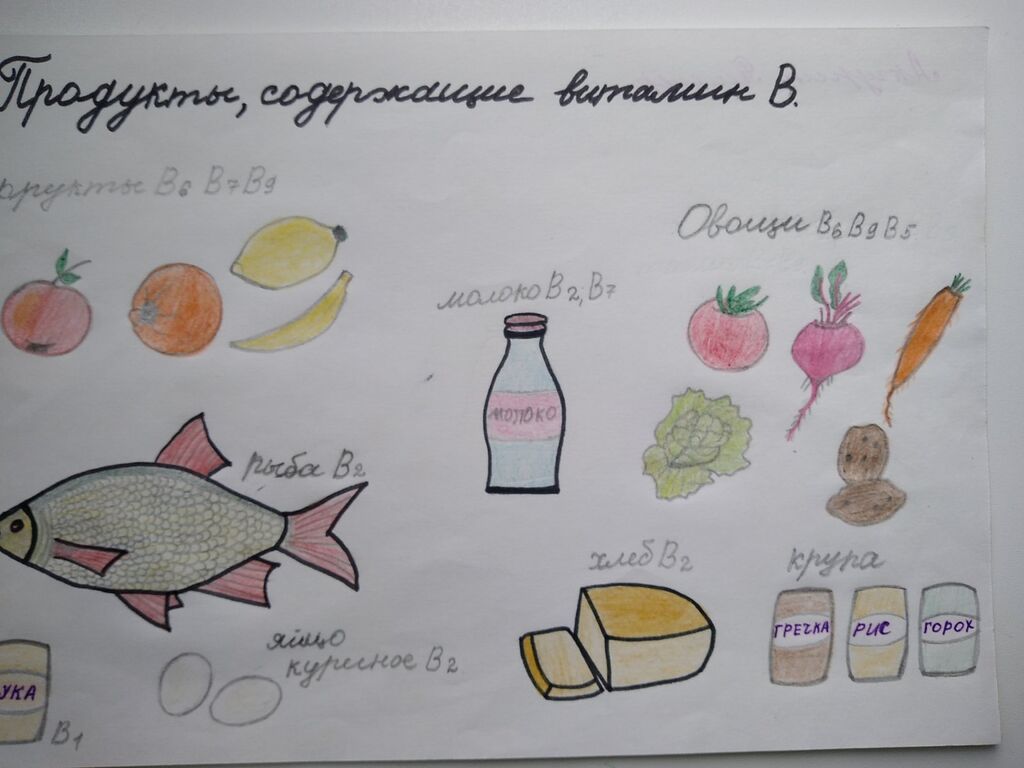 Продукты, содержащие витамин В.
фрукты В6 В7 В9
Овощи В6 В9 В5
молоко В2, В7
МОЛОКО
рыба В2
хлеб В2
крупа
ГРЕЧКА
РИС
ГОРОХ
яйцо
куриное В2
УКА
В1